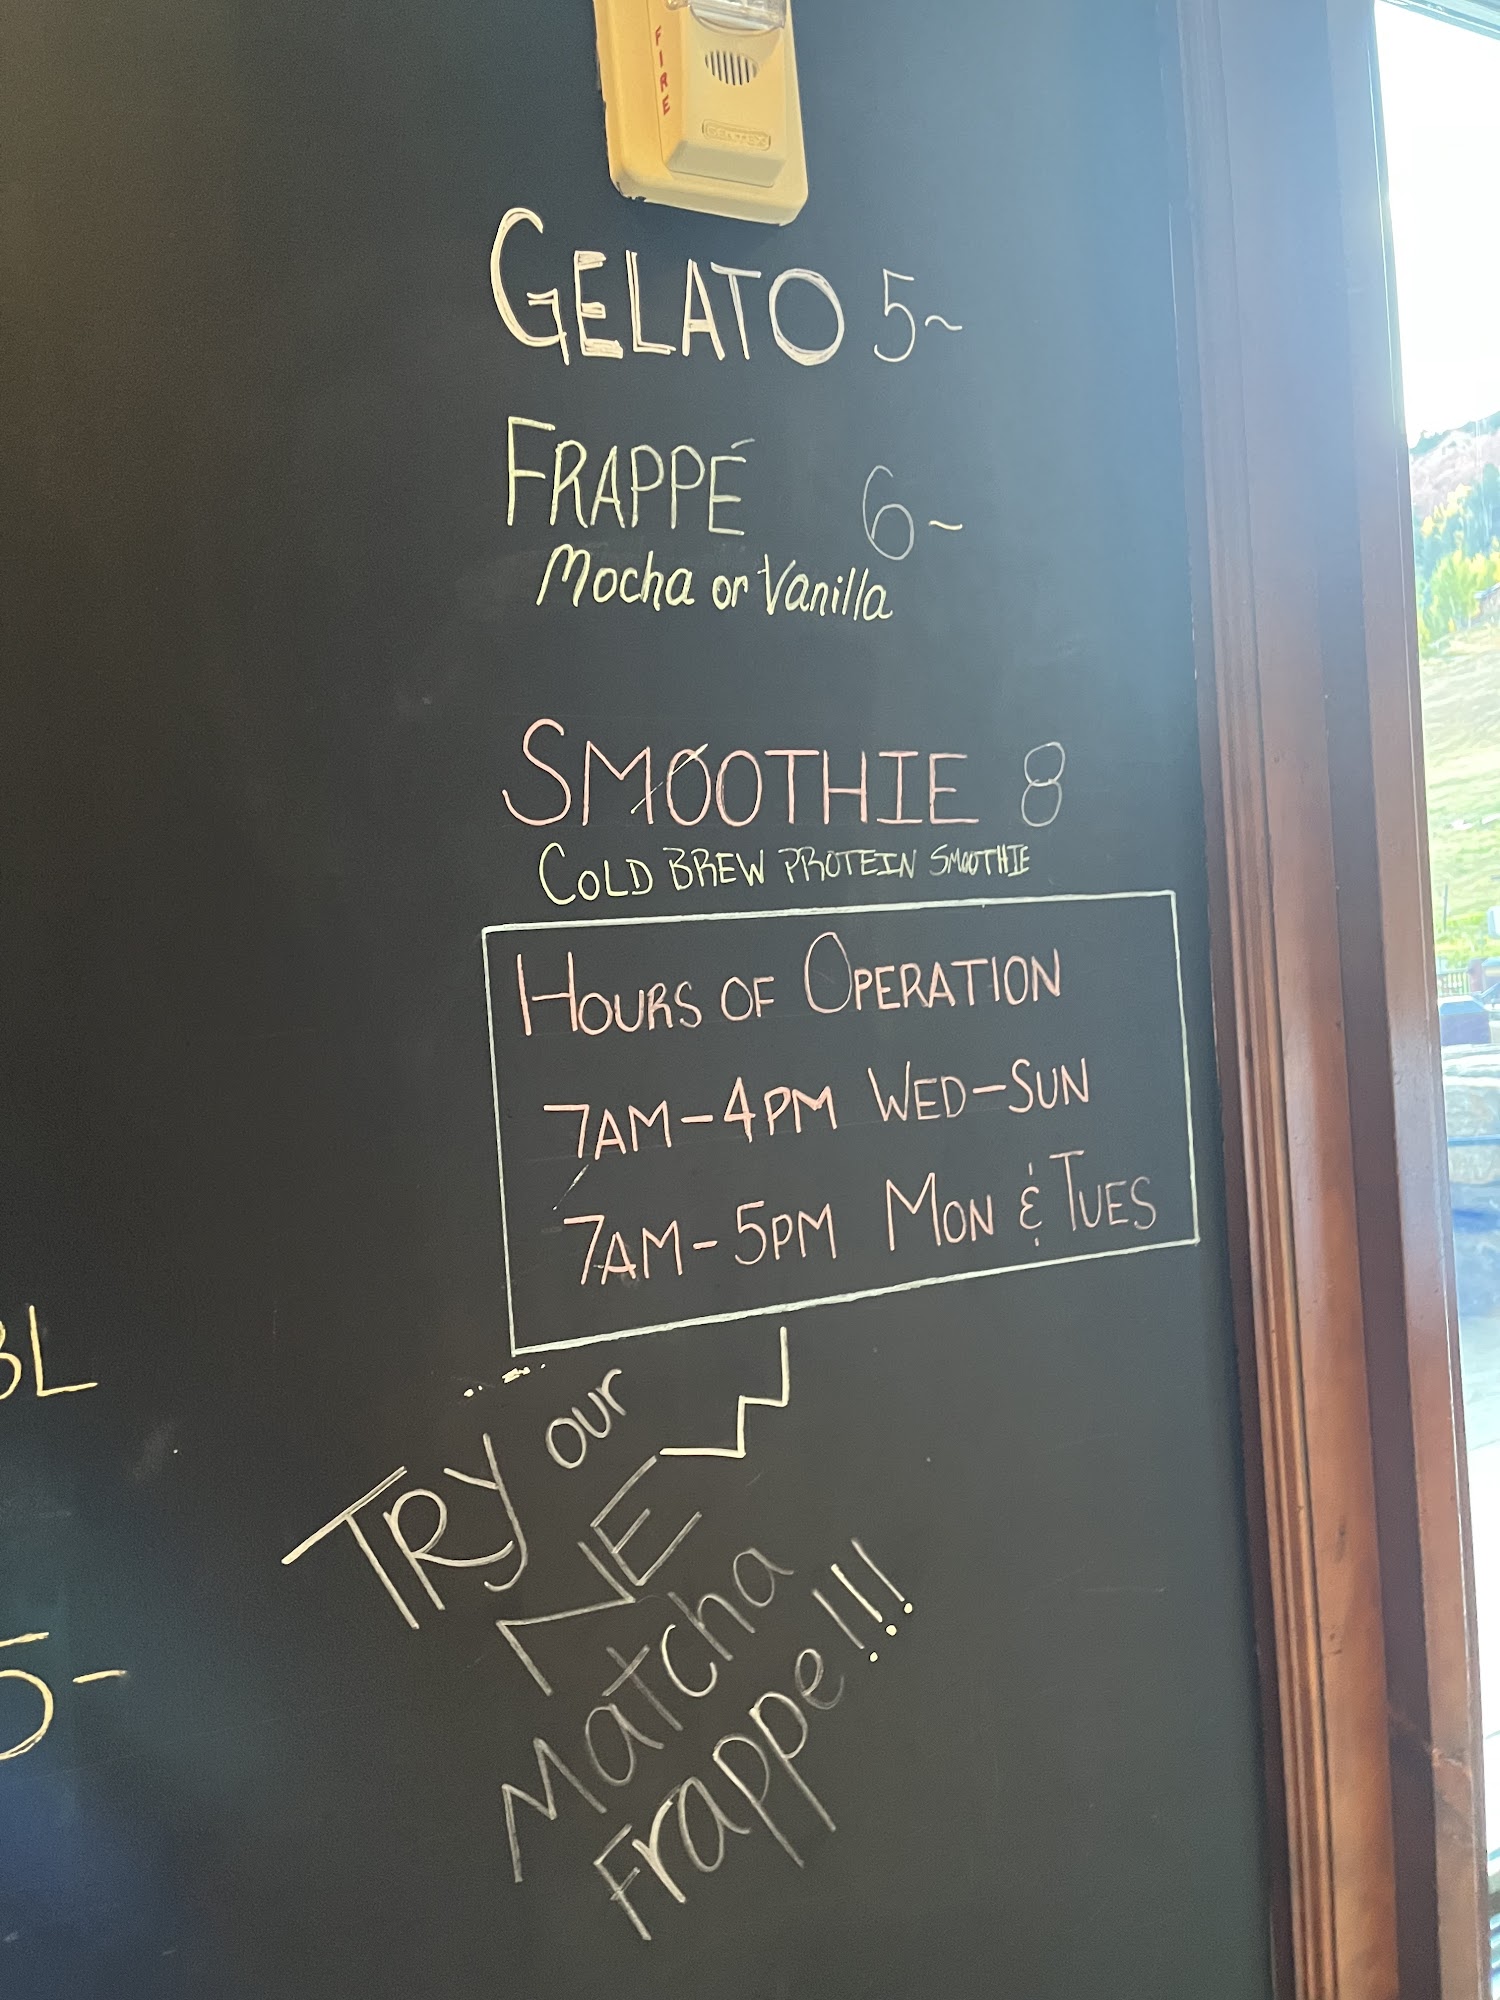 FIRE
GENTEX
GELATO 5~
FRAPPÉ 6~
Mocha or Vanilla
SMOOTHIE 8
COLD BREW PROTEIN SMOOTHIE
HOURS OF OPERATION
7AM-4PM WED-SUN
7AM-5PM MON & TUES
BL
5-
TRY our
NEW
Matcha
Frappe!!!